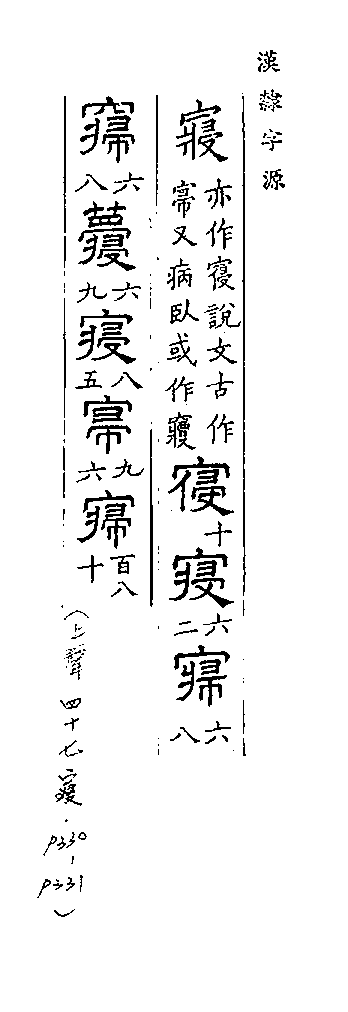 漢隸字源
寢 亦作寑說文古作𡪢又病臥或作𡪷 寑 十 寑 六二 𡪢 六八
六八 六九 寑 八五 九六 百八十
(上聲四十七寢.P330-P331)